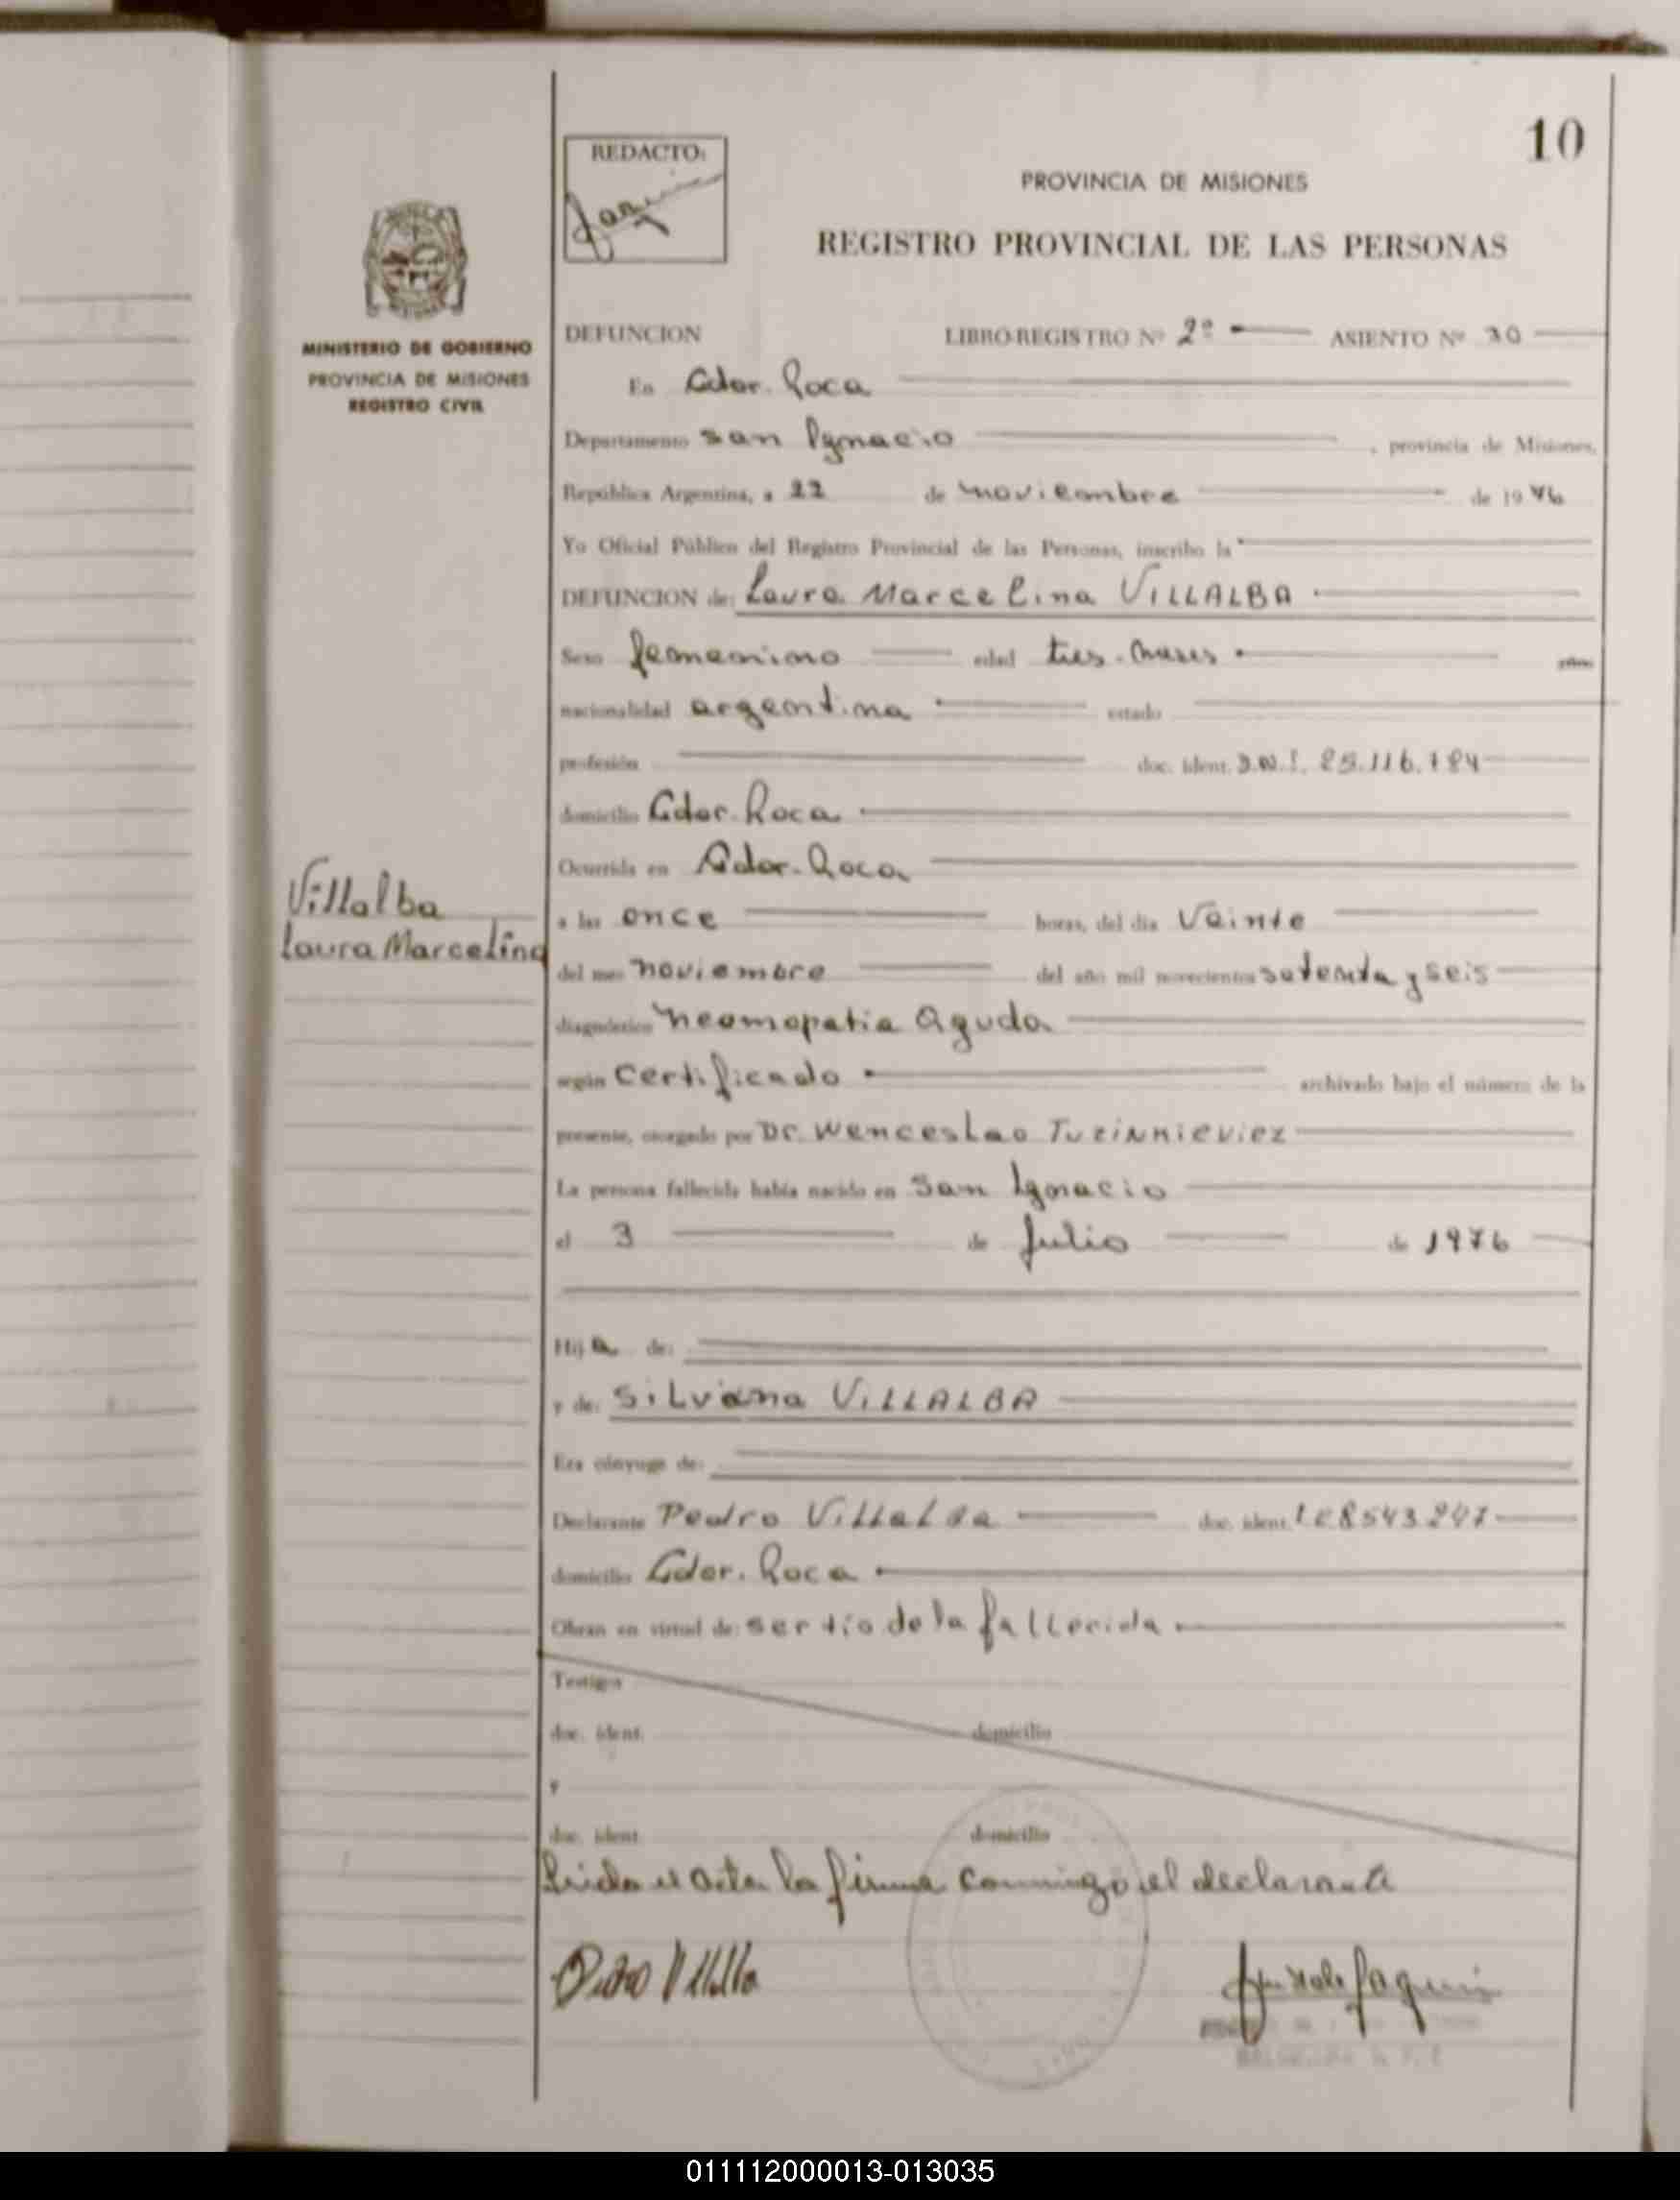 10
REDACTO:
PROVINCIA DE MISIONES
REGISTRO PROVINCIAL DE LAS PERSONAS
MINISTERIO DE GOBIERNO
PROVINCIA DE MISIONES
REGISTRO CIVIL
DEFUNCION LIBRO-REGISTRO Nº 2º ASIENTO Nº
En Gdor. Roca
Departamento San Ignacio, provincia de Misiones,
República Argentina, a 22 de noviembre de 1976
Yo Oficial Público del Registro Provincial de las Personas, inscribo la
DEFUNCION de: Laura Marcelina VILLALBA
Sexo femenino edad tres meses años
nacionalidad argentina estado
profesión doc. ident. D.N.I. 25.116.784
domicilio Gdor. Roca
Ocurrida en Gdor. Roca
Villalba
Laura Marcelina
a las once horas, del día Veinte
del mes noviembre del año mil novecientos setenta y seis
diagnóstico neomopatia Aguda
según Certificado archivado bajo el número de la
presente, otorgado por Dr. Wenceslao
La persona fallecida había nacido en San Ignacio
el 3 de Julio de 1976
Hija de:
y de: Silvana VILLALBA
Era cónyuge de:
Declarante Pedro Villalba doc. ident. LE 8543247
domicilio Gdor. Roca
Obran en virtud de: ser tío de la fallecida
Testigos
doc. ident. domicilio
y
doc. ident. domicilio
Leida el acta la firma conmigo el declarante
Pedro Villalba
011112000013-013035